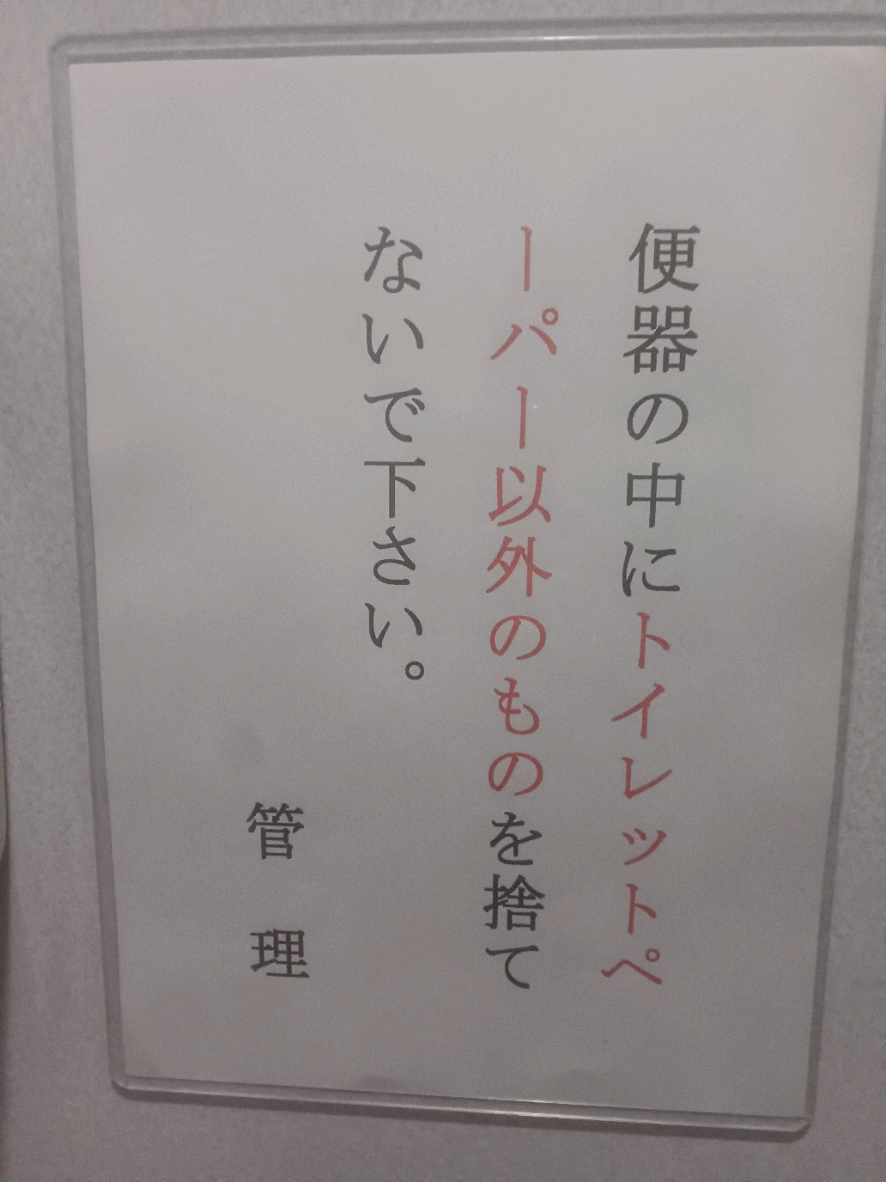 便器の中にトイレットペ
ーパー以外のものを捨て
ないで下さい。
管理